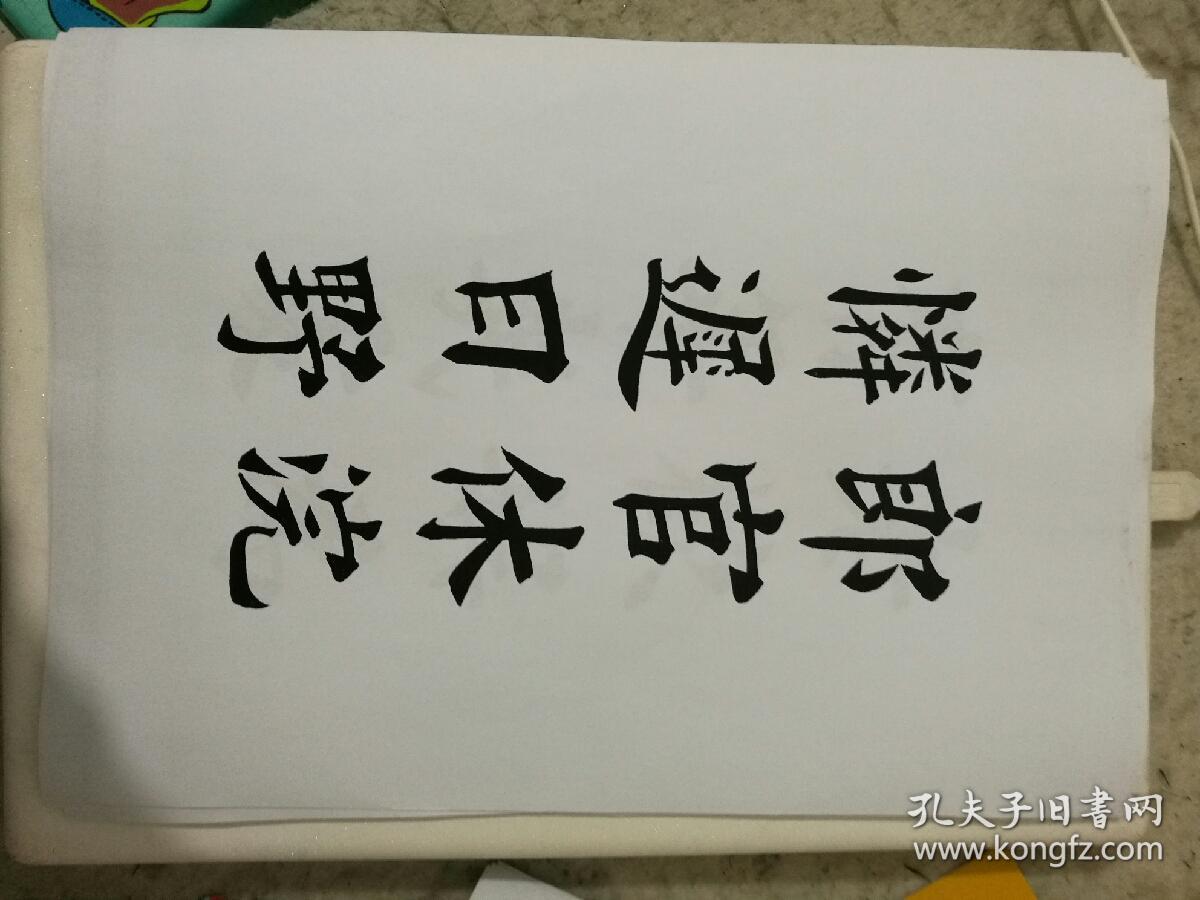 郎官休浣
憐遲日野
孔夫子旧書网
www.kongfz.com